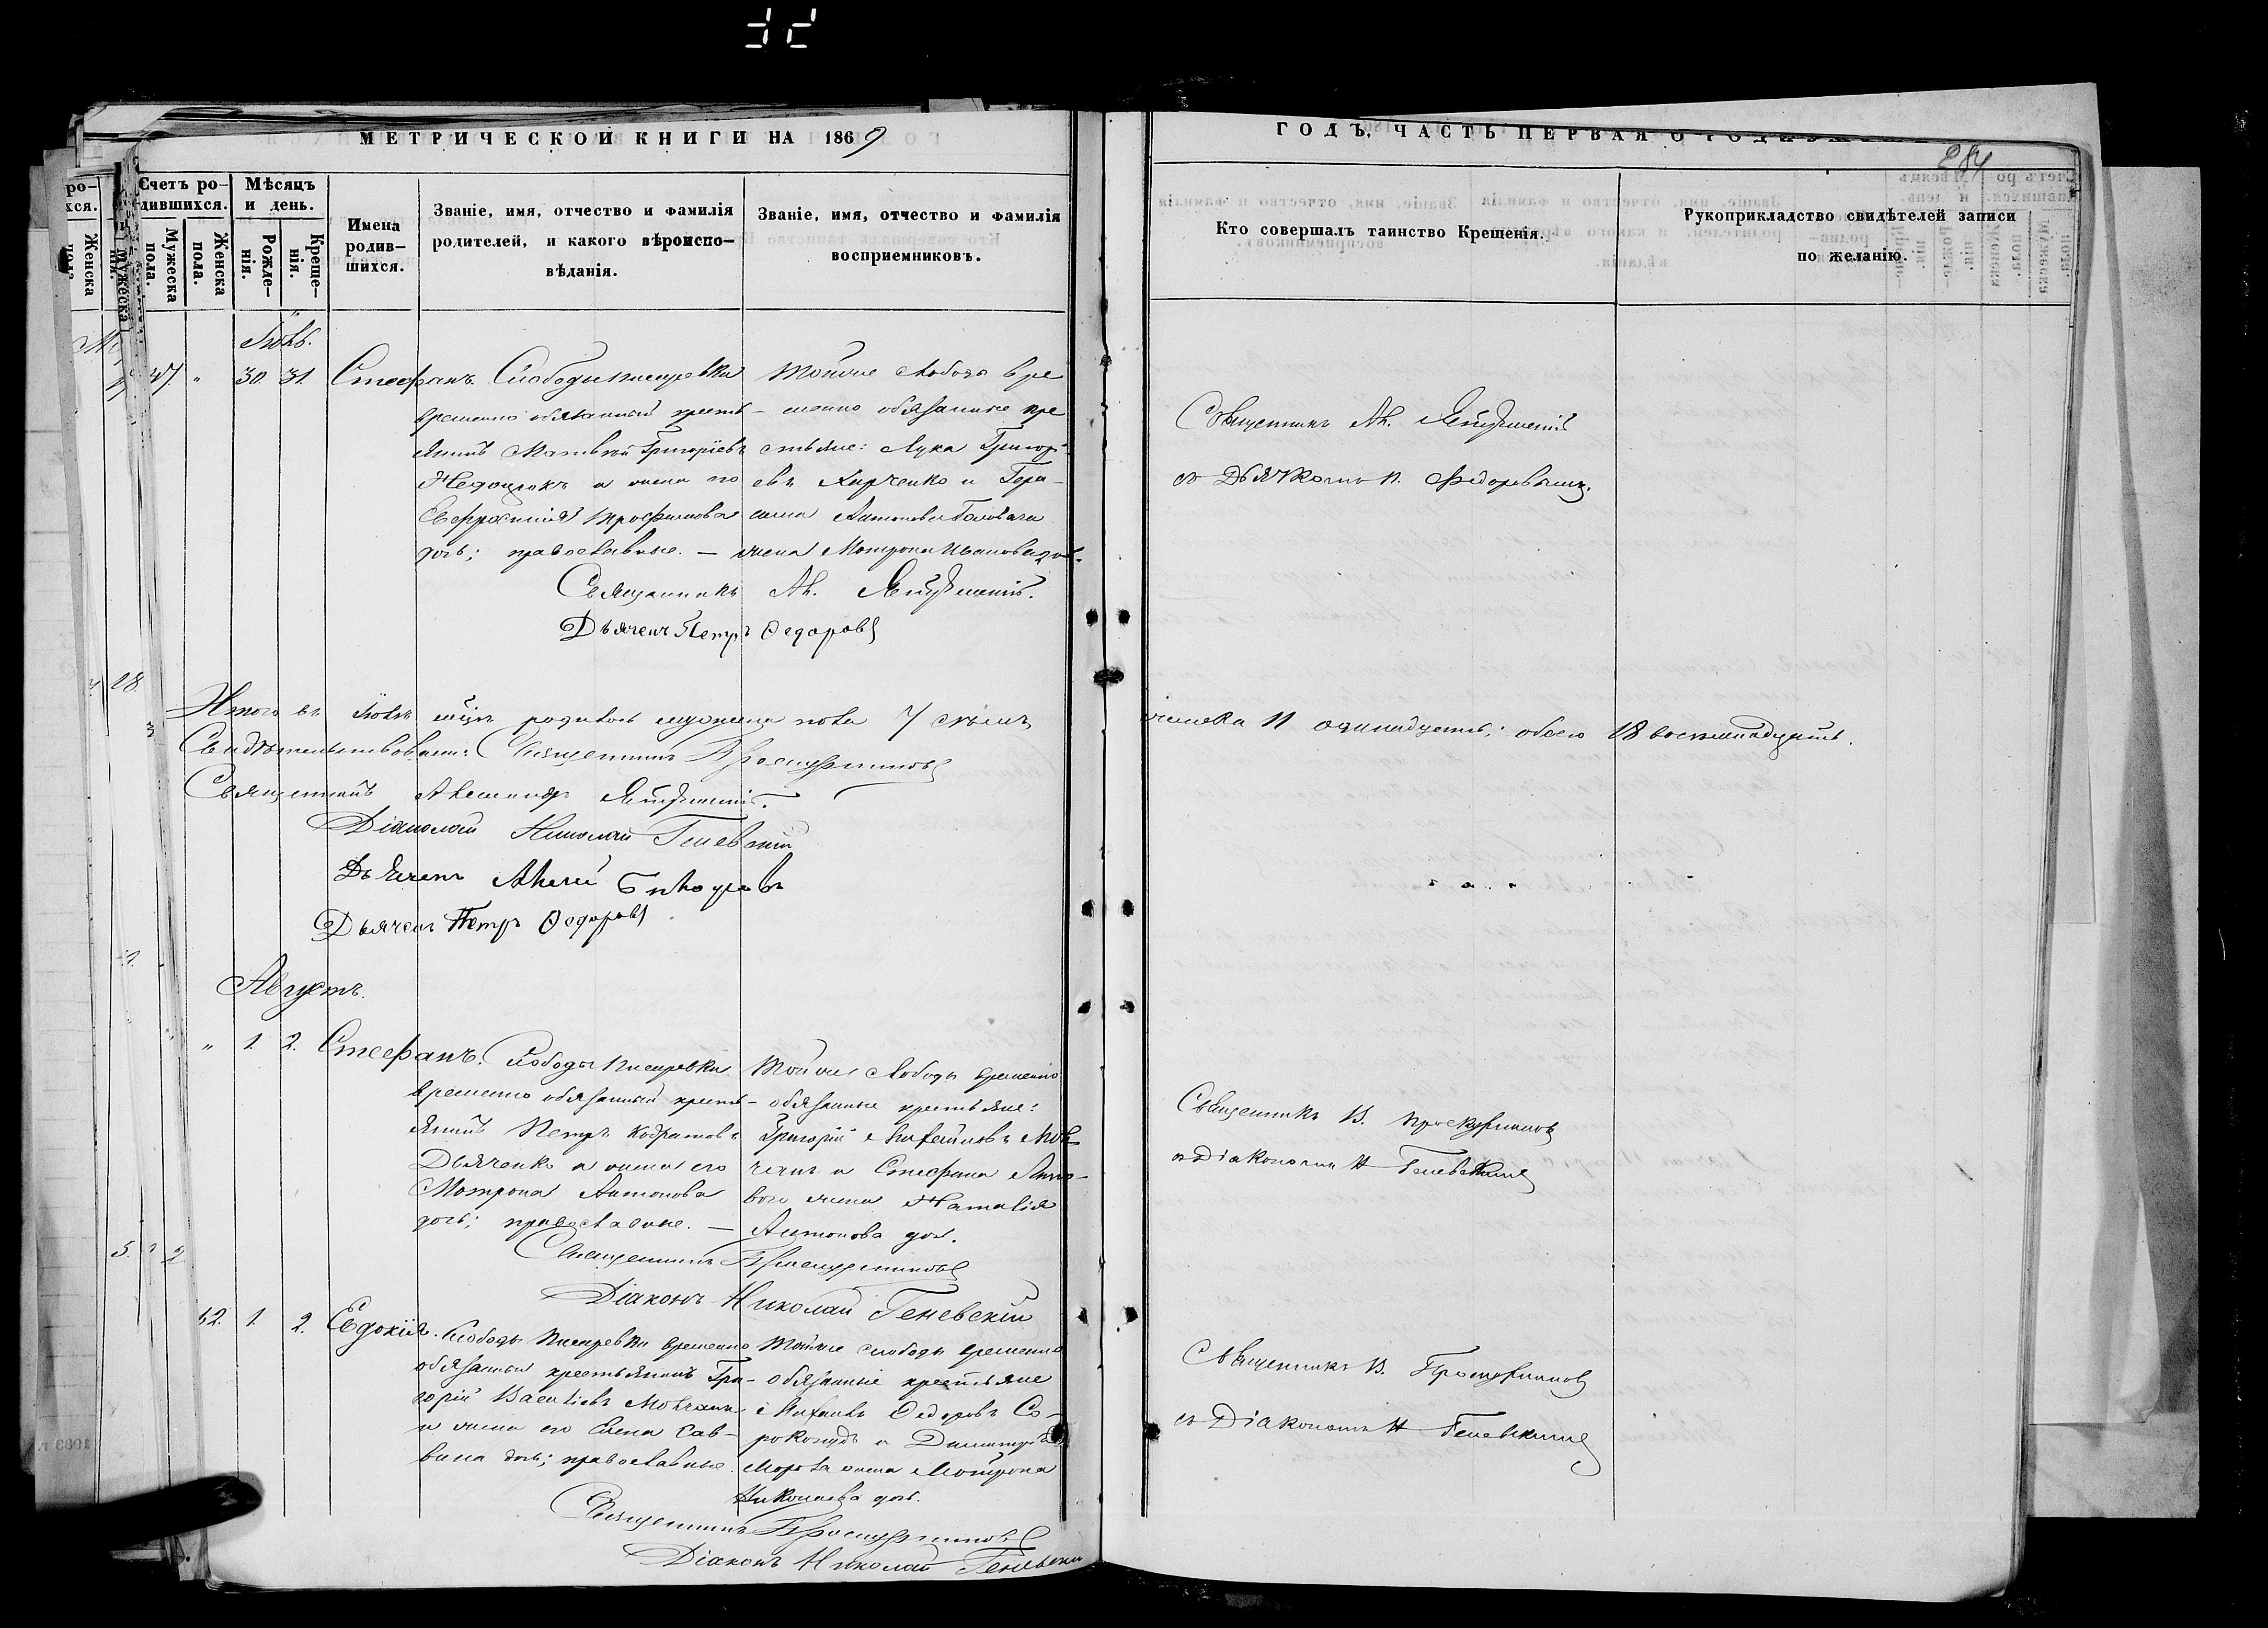 МЕТРИЧЕСКОЙ КНИГИ НА 1869
ГОДЪ, ЧАСТЬ ПЕРВАЯ О
284
Счетъ родившихся.
Мужеска пола.
Женска пола.
Мѣсяцъ и день.
Рожденія.
Крещенія.
Имена родившихся.
Званіе, имя, отчество и фамилія родителей, и какого вѣроисповѣданія.
Званіе, имя, отчество и фамилія восприемниковъ.
Кто совершалъ таинство Крещенія.
Рукоприкладство свидѣтелей записи по желанію.
Іюль.
47. " 30. 31. Стефанъ.
Слободы Писаревки
временно обязанный кресть-
янинъ Матвѣй Григоріевъ
и жена его
Евфросинія Трофимова
дочь; православные. —
Тойже слободы вре
менно обязанные кре
стьяне: Лука Григорі-
евъ Харченко и Гера-
сима Антонова
жена Мотрона Иванова доч.
Священникъ Ал.
Дьячекъ Петръ Ѳедоровъ
Священникъ Ал.
съ Дьячкомъ П. Федоровымъ.
28
Итого въ Іюлѣ мѣсяцѣ родилось мужеска пола 7 семь,
женска 11 одинадцать; обоего 18 восемнадцать.
Свидѣтельствовали: Священникъ
Священникъ Александръ
Діаконъ Николай Геневскій
Дьячекъ
Дьячекъ Петръ Ѳедоровъ
Августъ.
" 1. 2. Стефанъ.
Слободы Писаревки
временно обязанный кресть-
янинъ Петръ Кодратовъ
Дьяченко и жена его
Мотрона Антонова
дочь; православные. —
Тойже слободы временно
обязанные крестьяне:
Григорій Михайловъ Мов-
чанъ и Стефана
жена Наталія
Антонова доч.
Священникъ
Діаконъ Николай Геневскій
Священникъ В.
съ Діакономъ Н Геневскимъ
52. 1. 2. Евдокія.
Слободы Писаревки временно
обязанный крестьянинъ Гри-
горій Васильевъ Мовчанъ
и жена его Елена Сав-
вина дочь; православные.
Тойже слободы временно
обязанные крестьяне
Михаилъ Ѳедоровъ Со-
рокопудъ и Димитрія
Мороза жена Мотрона
Николаева доч.
Священникъ
Діаконъ Николай Геневскій
Священникъ В.
съ Діакономъ Н Геневскимъ